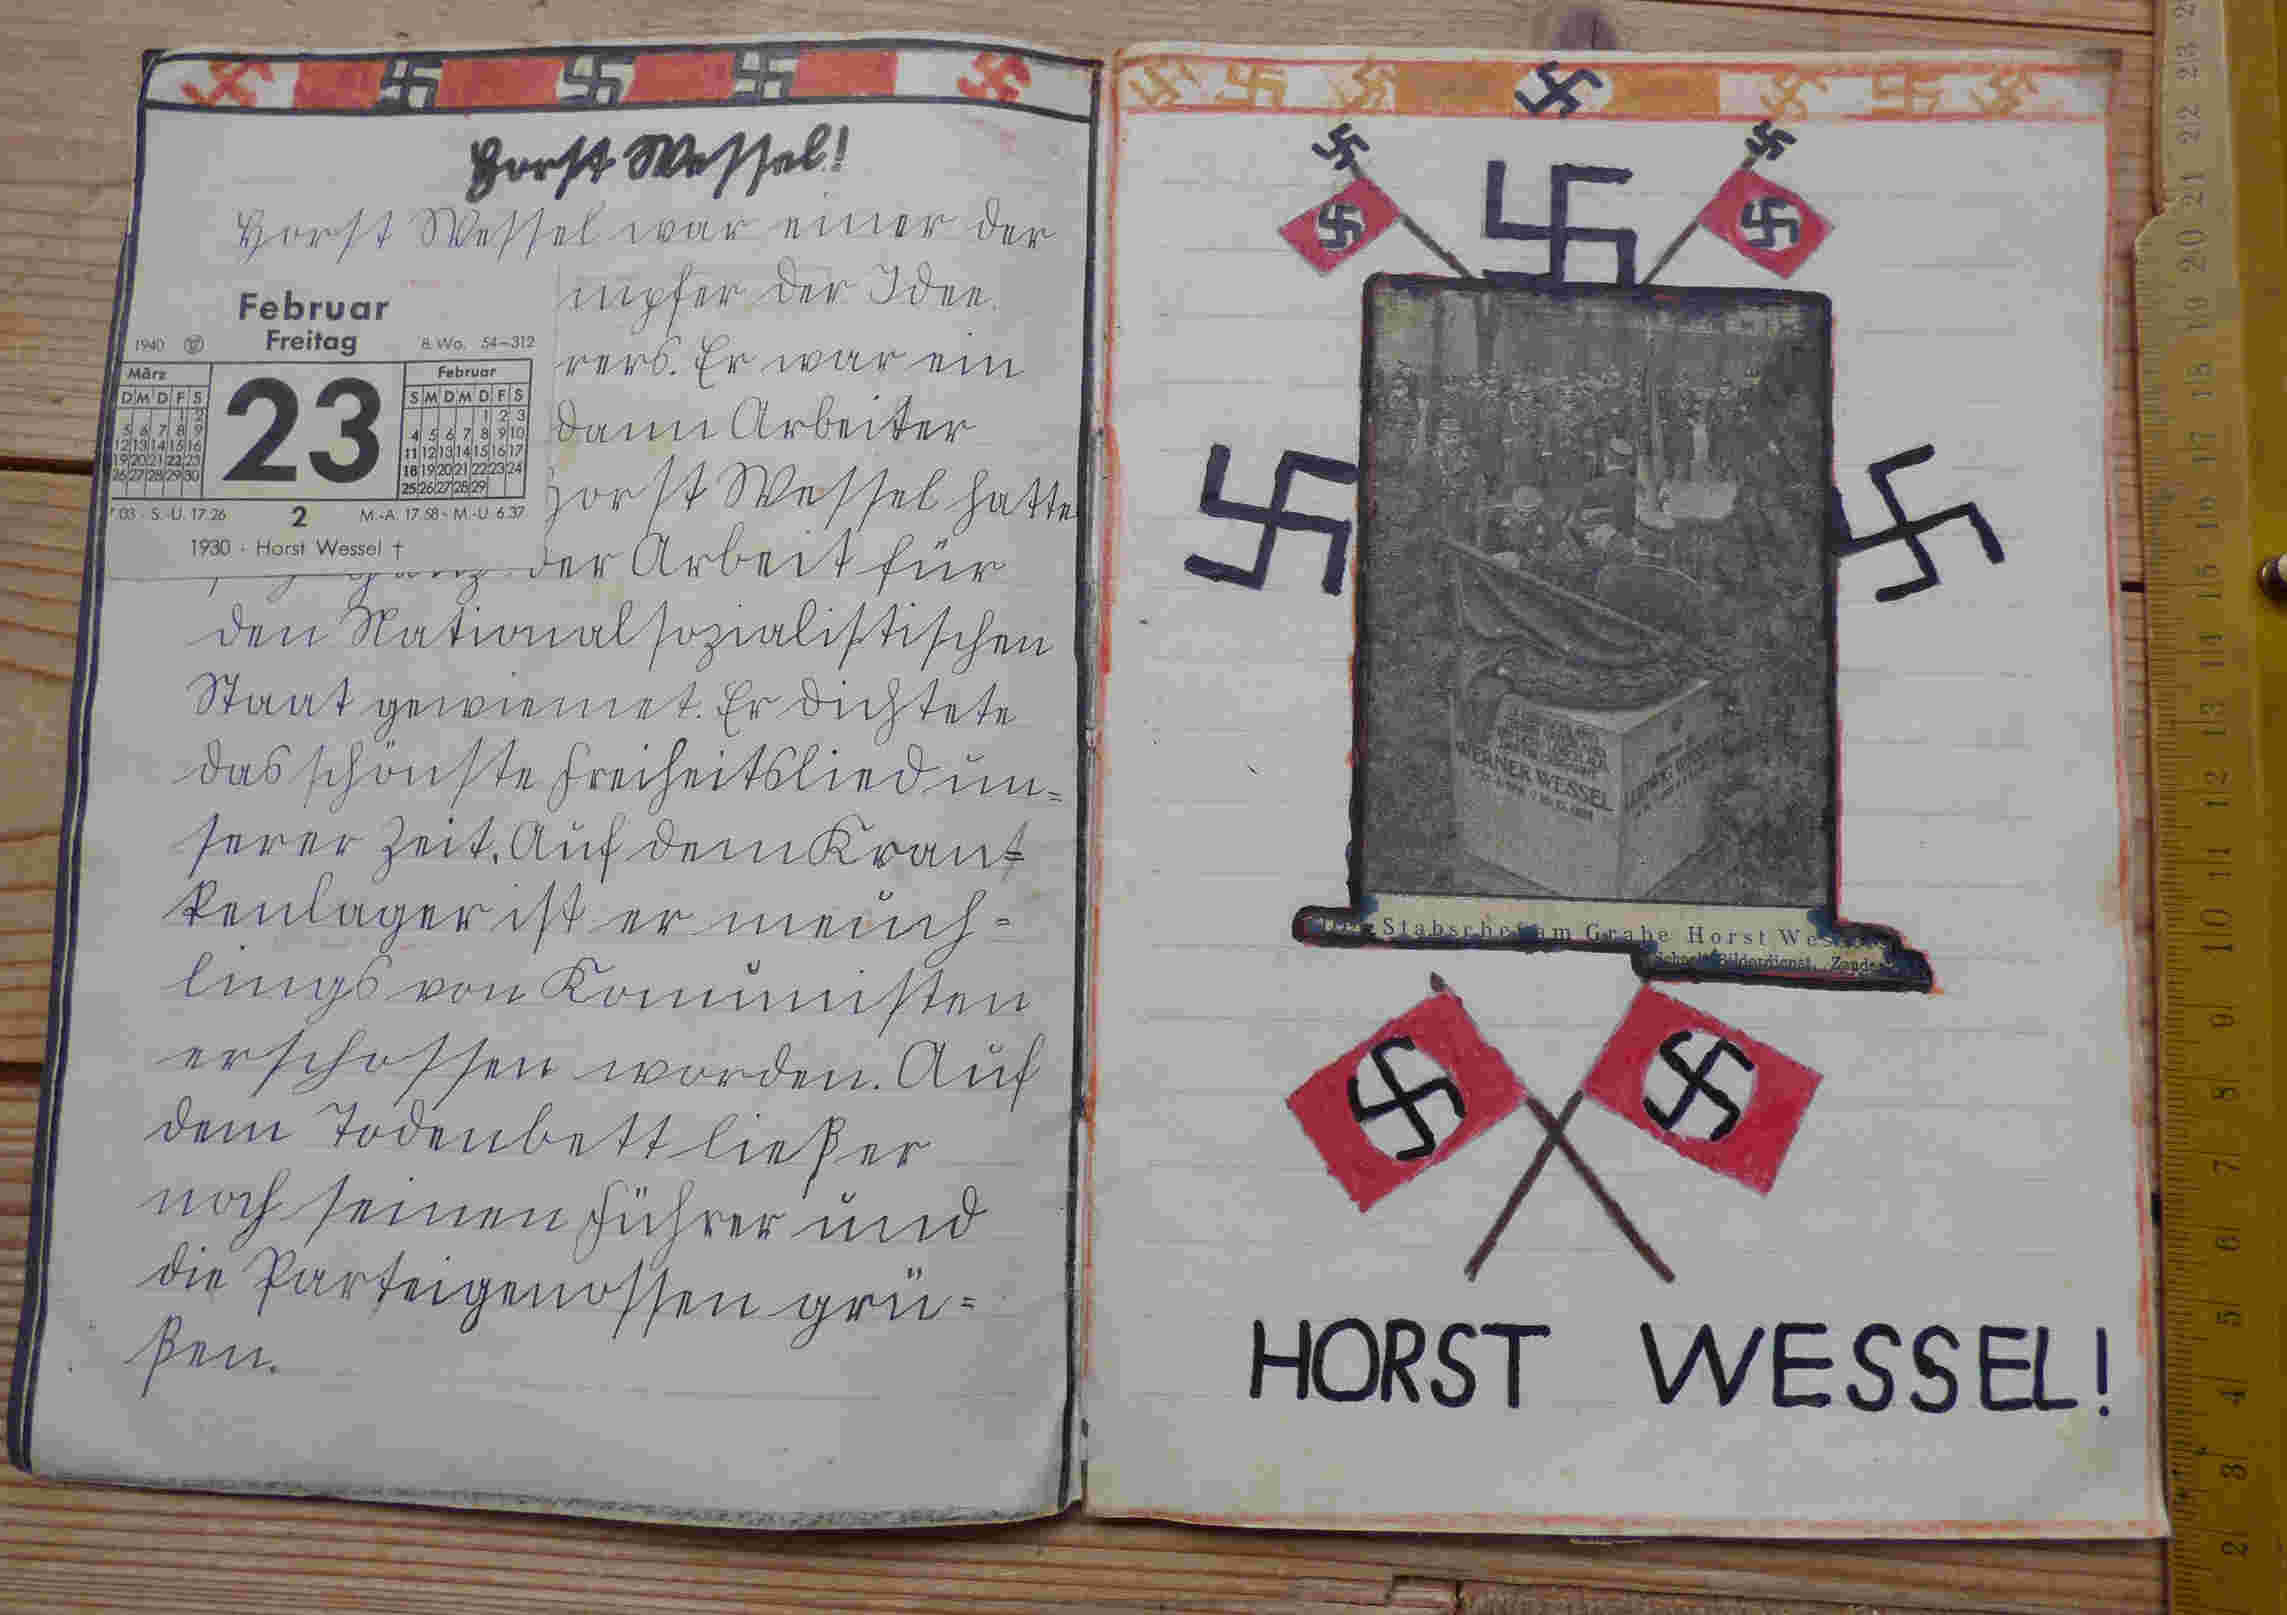 Horst Wessel!
Horst Wessel war einer der
mpfer der Idee.
rers. Er war ein
dann Arbeiter
Horst Wessel hatte
ganz der Arbeit für
den Nationalsozialistischen
Staat gewiemet. Er dichtete
das schönste Freiheitslied un=
serer Zeit. Auf dem Kran=
kenlager ist er meuch=
lings von Komunisten
erschossen worden. Auf
dem Todenbett ließ er
noch seinen Führer und
die Parteigenossen grü=
ßen.
Februar
1940 Freitag 8. Wo. 54–312
März
D M D F S
1 2
5 6 7 8 9
12 13 14 15 16
19 20 21 22 23
26 27 28 29 30
23
Februar
S M D M D F S
1 2 3
4 5 6 7 8 9 10
11 12 13 14 15 16 17
18 19 20 21 22 23 24
25 26 27 28 29
7.03 · S.-U. 17.26 2 M.-A. 17.58 · M.-U. 6.37
1930 · Horst Wessel †
WERNER WESSEL
Stabschef am Grabe Horst Wes
Bilderdienst,
HORST WESSEL!
23
22
21
20
19
18
17
16
15
14
13
12
11
10
9
8
7
6
5
4
3
2